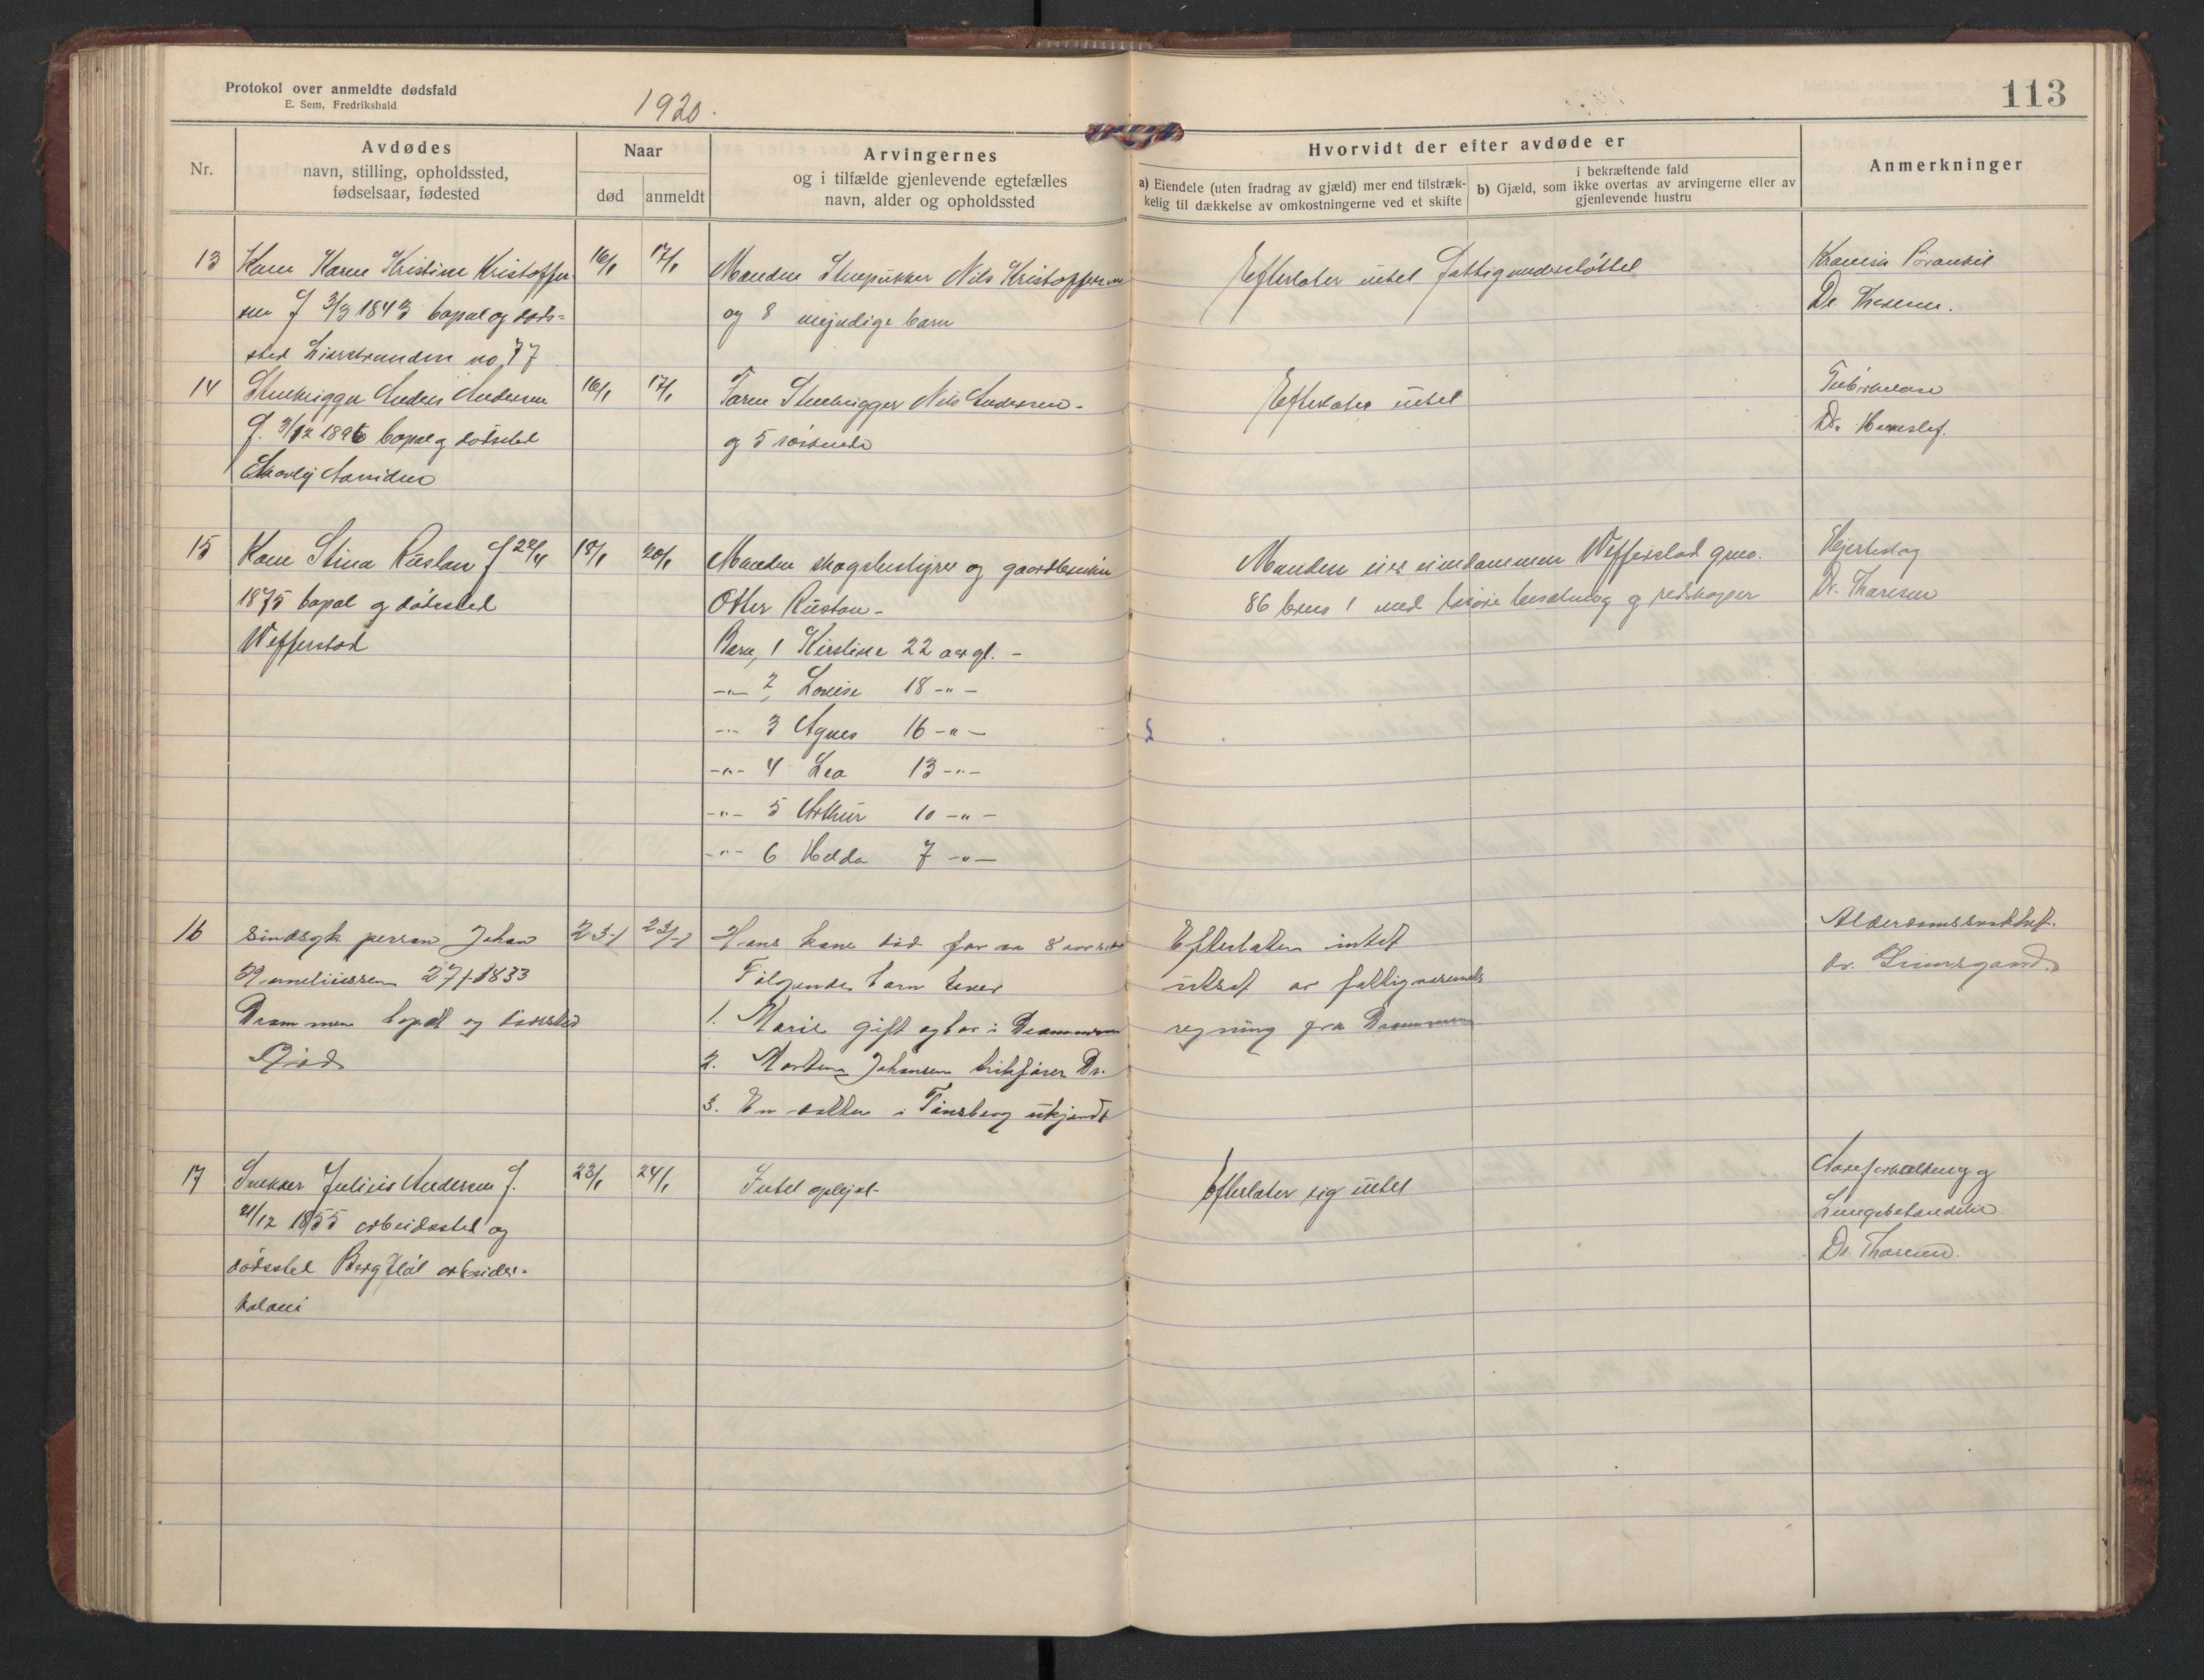 Protokol over anmeldte dødsfald
E. Sem, Fredrikshald
1920.
113
Nr.
Avdødes
navn, stilling, opholdssted,
fødselsaar, fødested
Naar
død
anmeldt
Arvingernes
og i tilfælde gjenlevende egtefælles
navn, alder og opholdssted
Hvorvidt der efter avdøde er
a) Eiendele (uten fradrag av gjæld) mer end tilstræk-
kelig til dækkelse av omkostningerne ved et skifte
i bekræftende fald
b) Gjæld, som ikke overtas av arvingerne eller av
gjenlevende hustru
Anmerkninger
13
Kone Karen Kristine Kristoffer
sen f 3/3 1843 bopæl og døds-
sted Lierstranden no 77
16/1
17/1
Manden Stenpukker Nils Kristoffersen
og 8 myndige barn
Efterlater intet Fattigunderstøttet
Kronisk
Dr. Thoresen.
14
Stenhugger Anders Andersen
f. 3/12 1896 bopæl og dødssted
16/1
17/1
Faren Stenhugger Nils Andersen-
og 5 søskende
Efterlater intet
Tuberkulose
Dr.
15
Kone Stina Rustan f 22/4
1875 bopæl og dødssted
Wefferstad
18/1
20/1
Manden skogsbestyrer og gaardbruker
Otter Rustan-
Barn, 1 Kirstine 22 aar gl. -
-"- 2, Lovise 18 -"-
-"- 3 Agnes 16 -"-
-"- 4 Lea 13 -"-
-"- 5 Arthur 10 -"-
-"- 6 Helda 7 -"-
Manden eier eiendommen Wefferstad gno.
86 bruno 1 med løsøre besætning og redskaper
Hjerteslag
Dr. Thoresen
16
Sindsyk person Johan
Korneliussen 27/1-1833
Drammen bopæl og dødssted
23-1
23/-1
Hans kone død for ca 8 aar siden
Følgende barn lever
1. Marie gift og bor i Drammen
2. Morten Johansen Dr.
3. En datter i Tønsberg ukjendt
Efterlater intet
utsat av fattigvæsenets
regning fra Drammen
Alderdomssvakhet.
dr.
17
Snekker Julius Andersen f.
21/12 1855 arbeidssted og
dødssted Bergfløt arbeider-
koloni
23/1
24/1
Intet oplyst-
Efterlater sig intet
Aareforkalkning og
Lungebetændelse
Dr. Thoresen.